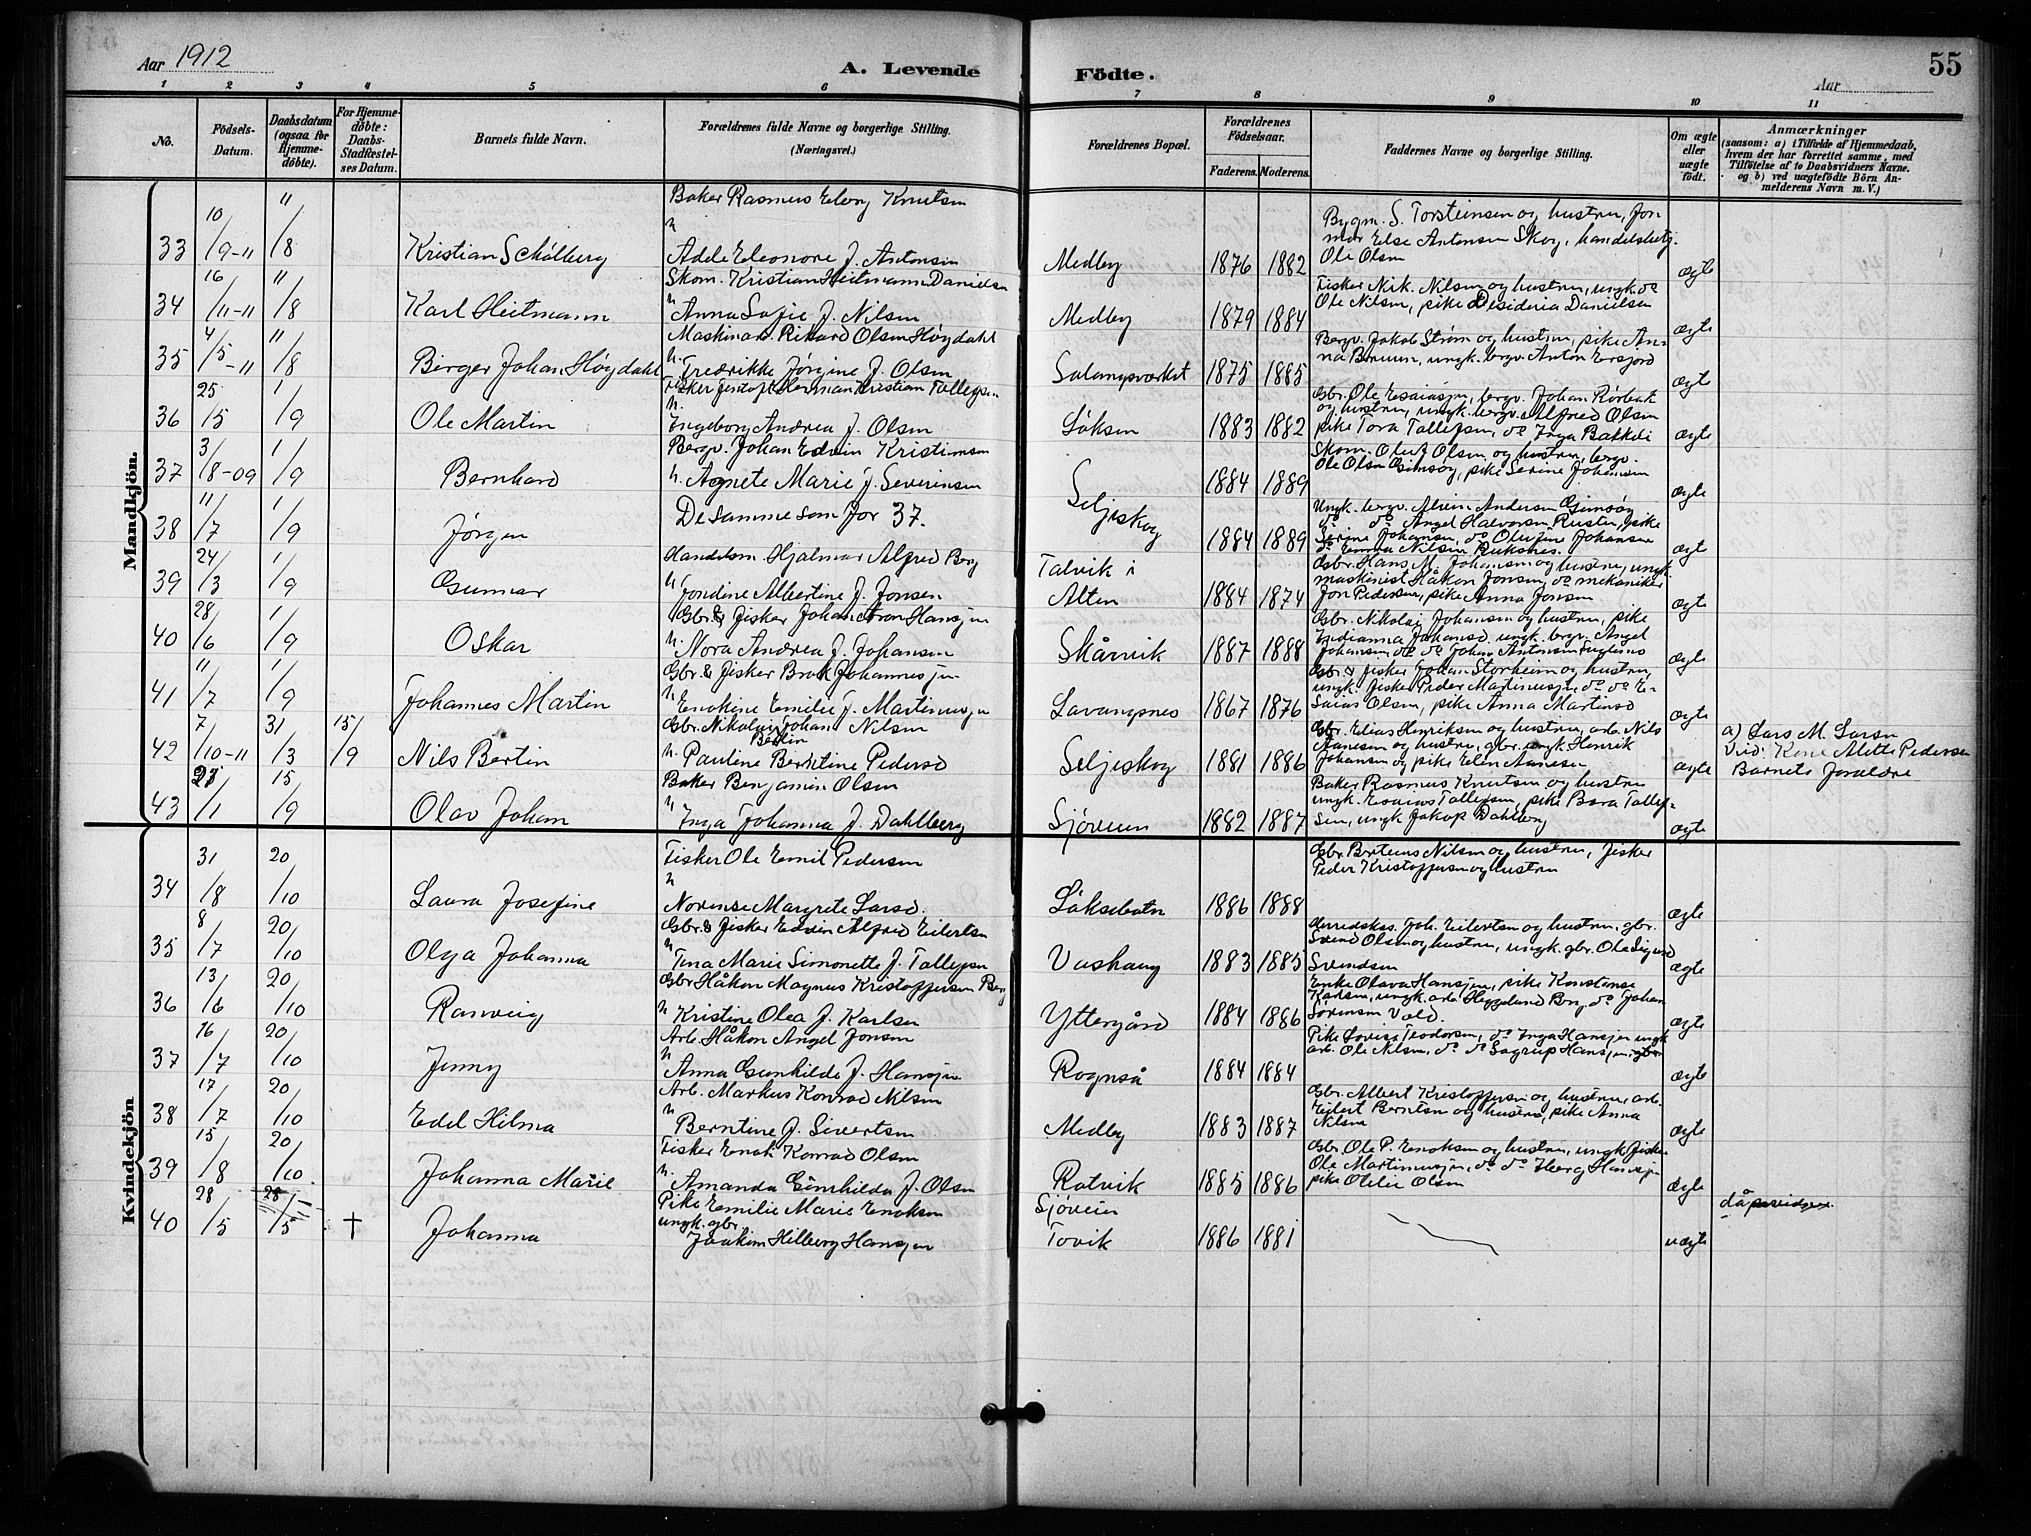 Aar 1912
A. Levende Födte.
Aar
55
1 2 3 4 5 6 7 8 9 10 11
No.
Födsels-Datum.
Daabsdatum (ogsaa for Hjemme-döbte).
For Hjemme-döbte: Daabs-Stadfæstel-ses Datum.
Barnets fulde Navn.
Forældrenes fulde Navne og borgerlige Stilling.
(Næringsvei.)
Forældrenes Bopæl.
Forældrenes Födselsaar.
Faderens. Moderens.
Faddernes Navne og borgerlige Stilling.
Om ægte eller uægte født.
Anmærkninger
(saasom: a) i Tilfælde af Hjemmedaab, hvem der har forrettet samme, med Tilföielse af to Daabsvidners Navne. og b) ved uægtefödte Börn An-melderens Navn m. V.)
Mandkjön.
33 10/9-11 11/8 Kristian Schølberg
Baker Rasmus Knutsen
h. Adele Eleonore f. Antonsen
Medby 1876 1882
Bygm. S. Torsteinsen og hustru,
Else Antonsen Skog, handelsbetj.
Ole Olsen
ægte
34 16/11-11 11/8 Karl Heitmann
Skom. Kristian Heitmann Danielsen
h. Anna Sofie f. Nilsen
Medby 1879 1884
Fisker Nik. Nilsen og hustru, ungk. do
Ole Nilsen, pike Desideria Danielsen
ægte
35 4/5-11 11/8 Birger Johan Høgdahl
Maskinarb. Rikard Olsen Høgdahl
h. Fredrikke Jørgine f. Olsen
Salangsverket 1875 1885
Bergv. Jakob Strøm og hustru, pike An-
na Bruun, ungk. bergv. Anton Ersfjord
ægte
36 25/5 1/9 Ole Martin
Fisker Jentoft Herman Kristian Tollefsen
h. Ingeborg Andrea f. Olsen
Løksen 1883 1882
Gbr. Ole Esaiassen, bergv. Johan Rørbak
og hustru, ungk. bergv. Alfred Olsen
pike Tora Tollefsen, do Inga Bakkeli
ægte
37 3/8-09 1/9 Bernhard
Bergv. Johan Edvin Kristiansen
h. Agnete Marie f. Severinsen
Seljeskog
1884 1889
Skom. Oluf Olsen og hustru, bergv.
Ole Olsen Gimsøy, pike Serine Johansen
ægte
38 11/7 1/9 Jørgen
De samme som for 37.
1884 1889
Ungk. bergv. Alvin Andersen Gimsøy
do do Angel Halvorsen Rusten, pike
Serine Johansen, do Olufine Johansen
do Emma Nilsen Buksnes.
ægte
39 24/3 1/9 Gunnar
Handelsm. Hjalmar Alfred Berg
h. Jondine Albertine f. Jonsen
Talvik i
Alten 1884 1874
Gbr. Hans M. Johansen og hustru, ungk.
maskinist Håkon Jonsen, do mekaniker
Jon Pedersen, pike Anna Jonsen
ægte
40 28/6 1/9 Oskar
Gbr. & fisker Johan Aron Hansen
h. Nora Andrea f. Johansen
Skårvik 1887 1888
Gbr. Nikolai Johansen og hustru, pike
Indianna Johansd. ungk. bergv. Angel
Johansen, do do Johan Antonsen
ægte
41 11/7 1/9 Johannes Martin
Gbr. & fisker Brok Johannessen
h. Enokine Emilie f. Martinussen
Lavangsnes 1867 1876
Gbr. & fisker Johan Storheim og hustru,
ungk. fisker Peder Martinussen, do do E-
saias Olsen, pike Anna Martinsd
ægte
42 7/10-11 31/3 15/9 Nils Bertin
Gbr. Nikolai Johan Nilsen
Bertin
h. Pauline Berntine Pedersd
Seljeskog 1881 1886
Gbr. Elias Henriksen og hustru, arb. Nils
Aanesen og hustru, gbr. ungk. Henrik
Johansen og pike Elen Aanesen
ægte
a) Lars M. Larsen
Vid: Kone Alette Pedersen
Barnets forældre
43 23/1 15/9 Olav Johan
Baker Benjamin Olsen
h. Inga Johanna f. Dahlberg
Sjøveien 1882 1887
Baker Rasmus Knutsen og hustru
ungk. Esaias Tollefsen, pike Bara Tollef-
sen, ungk Jakop Dahlberg
ægte
Kvindekjön
34 31/8 20/10 Laura Josefine
Fisker Ole Emil Pedersen
h. Norense Margrete Larsd.
Løksebotn 1886 1888
Gbr. Berteus Nilsen og hustru, fisker
Peder Kristoffersen og hustru
ægte
35 8/7 20/10 Olga Johanna
Gbr. & fisker Edvin Alfred Eilertsen
h. Tina Marie Simonette f. Tollefsen
Vashaug 1883 1885
Herredskas. Joh. Eilertsen og hustru, gbr.
Svend Olsen og hustru, ungk. gbr. Ole Sigurd
Svendsen
ægte
36 13/6 20/10 Ranveig
Gbr Håkon Magnus Kristoffersen Berg
h Kristine Olea f. Karlsen
Yttergård 1884 1886
Enke Olava Hansen, pike Konstanse
Karlsen, ungk. arb. Berg, do Johan
Sørensen Vold.
ægte
37 16/7 20/10 Jenny
Arb. Håkon Angel Jonsen
h Anna Gunhilde f. Hansen
Rognså 1884 1884
Pike Lovise Teodorsen, do Inga Hansen ungk
arb. Ole Nilsen, do do Hansen
ægte
38 17/7 20/10 Edel Hilma
Arb. Markus Konrad Nilsen
h Berntine f. Sivertsen
Medby 1883 1887
Gbr. Albert Kristoffersen og hustru, arb.
Eilert Berntsen og hustru, pike Anna
Nilsen
ægte
39 15/8 20/10 Johanna Marie
Fisker Enok Konrad Olsen
h. Amanda Gunhilda f. Olsen
Rotvik 1885 1886
Gbr. Ole P. Enoksen og hustru, ungk fisker
Ole Martinussen, do do Hansen
pike Otelie Olsen
ægte
40 28/5 28/5 † Johanna
Pike Emilie Marie Enoksen
ungk. gbr.
Joakim Hilberg Hansen
Sjøveien
Tovik 1886 1881
uægte